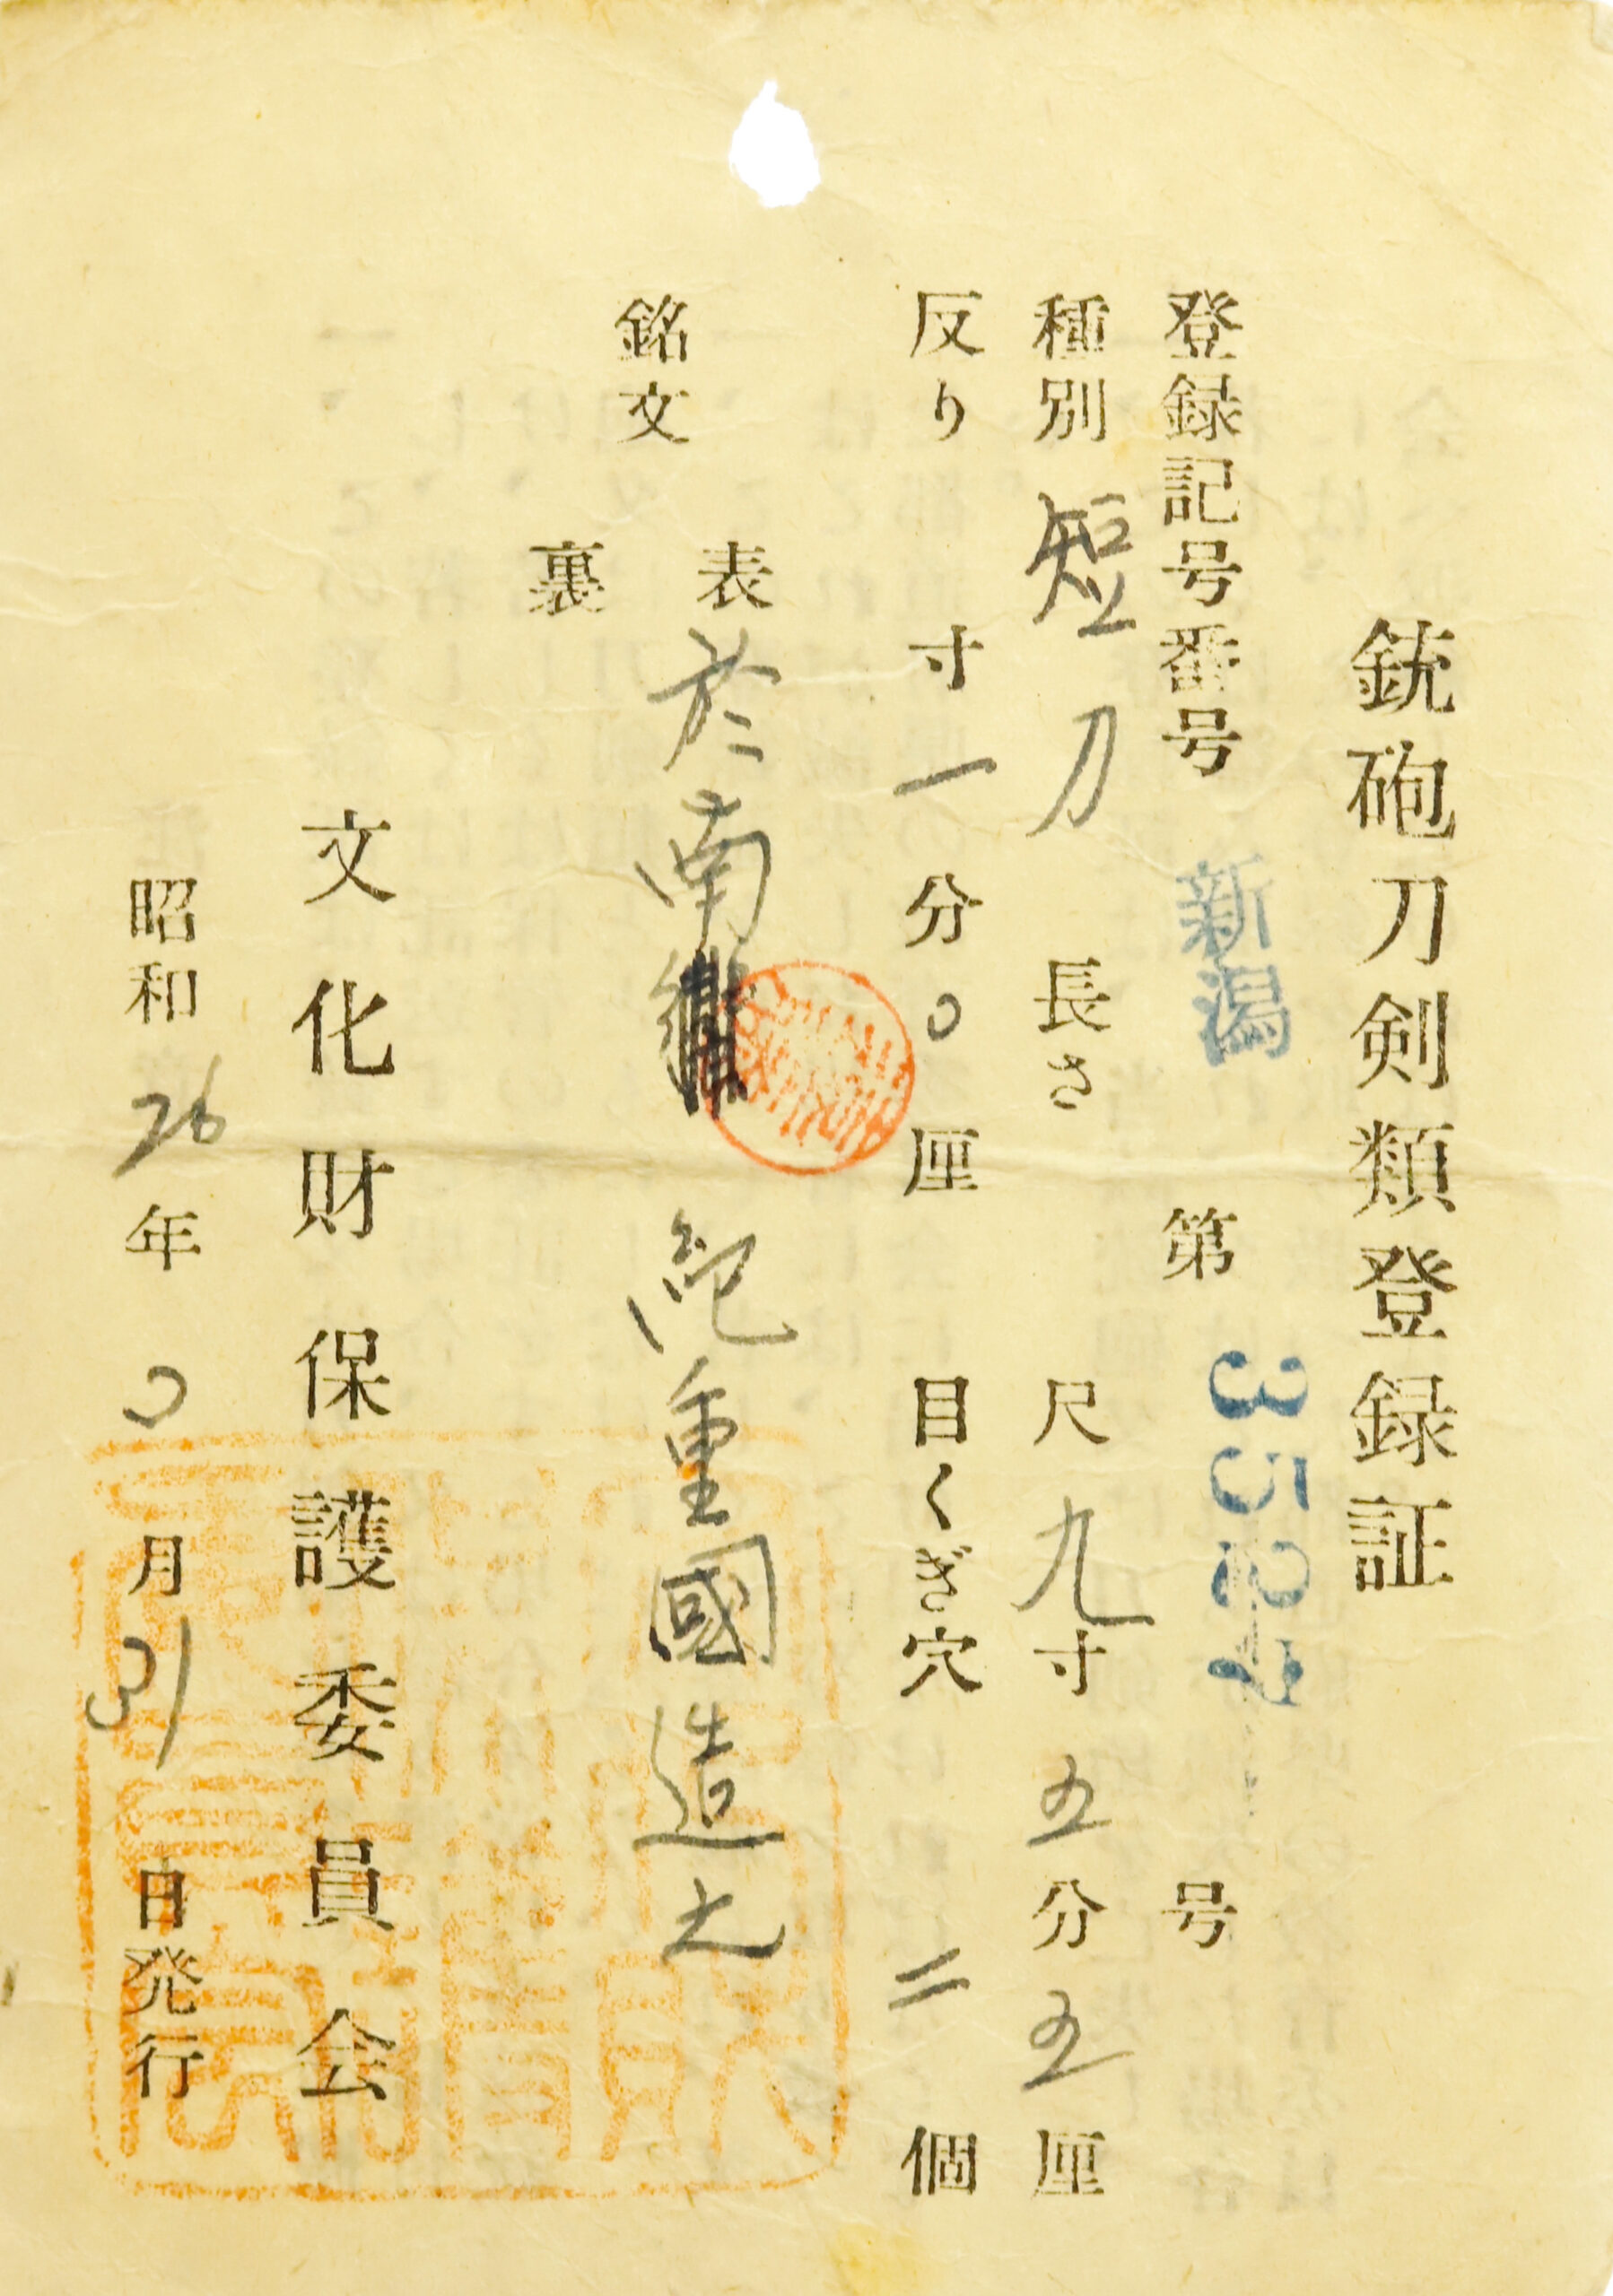 銃砲刀剣類登録証
登録記号番号 新潟 第 3524 号
種別 短刀 長さ 尺九寸五分五厘
反り 寸一分0厘 目くぎ穴 二個
銘文
表 於南 紀重國造之
裏
文化財保護委員会
昭和26年 月31日発行